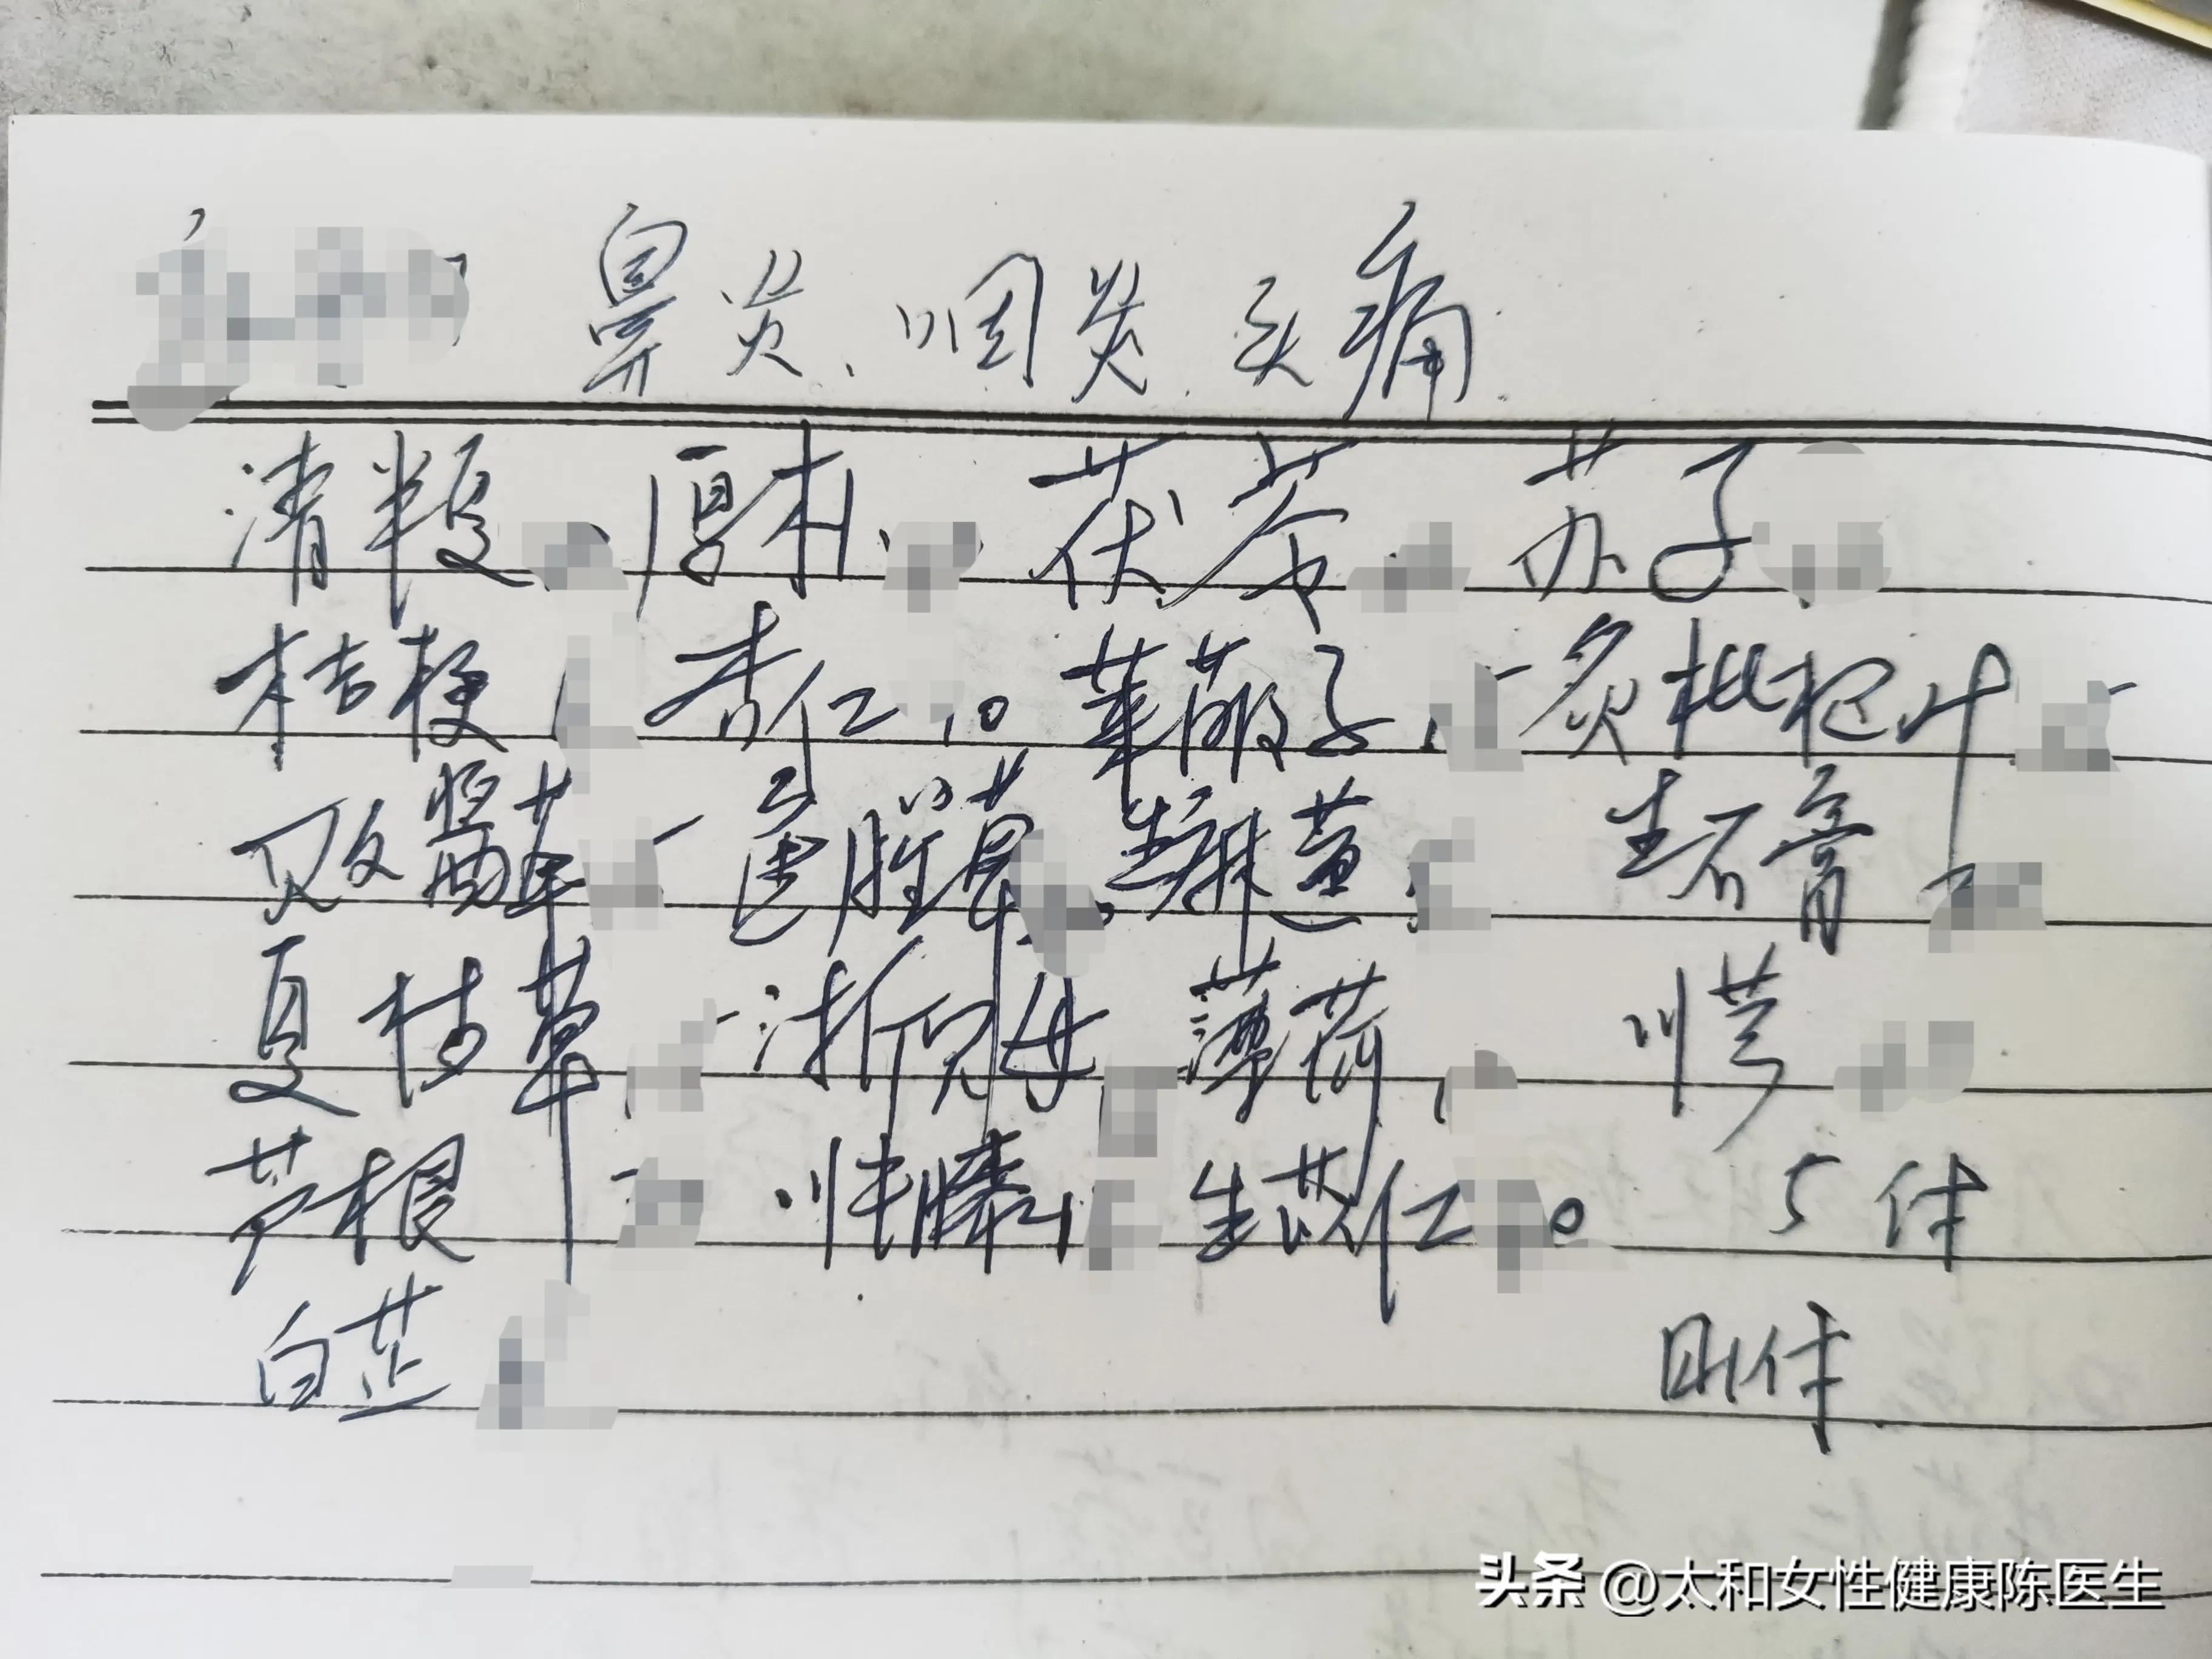 鼻炎、咽炎、头痛.
清半夏 厚朴 茯苓 苏子
桔梗 杏仁10 莱菔子 炙枇杷叶
败酱草 鱼腥草 生麻黄 生石膏
夏枯草 浙贝母 薄荷 川芎
芦根 川牛膝 生苡仁 5付
白芷
头条 @太和女性健康陈医生